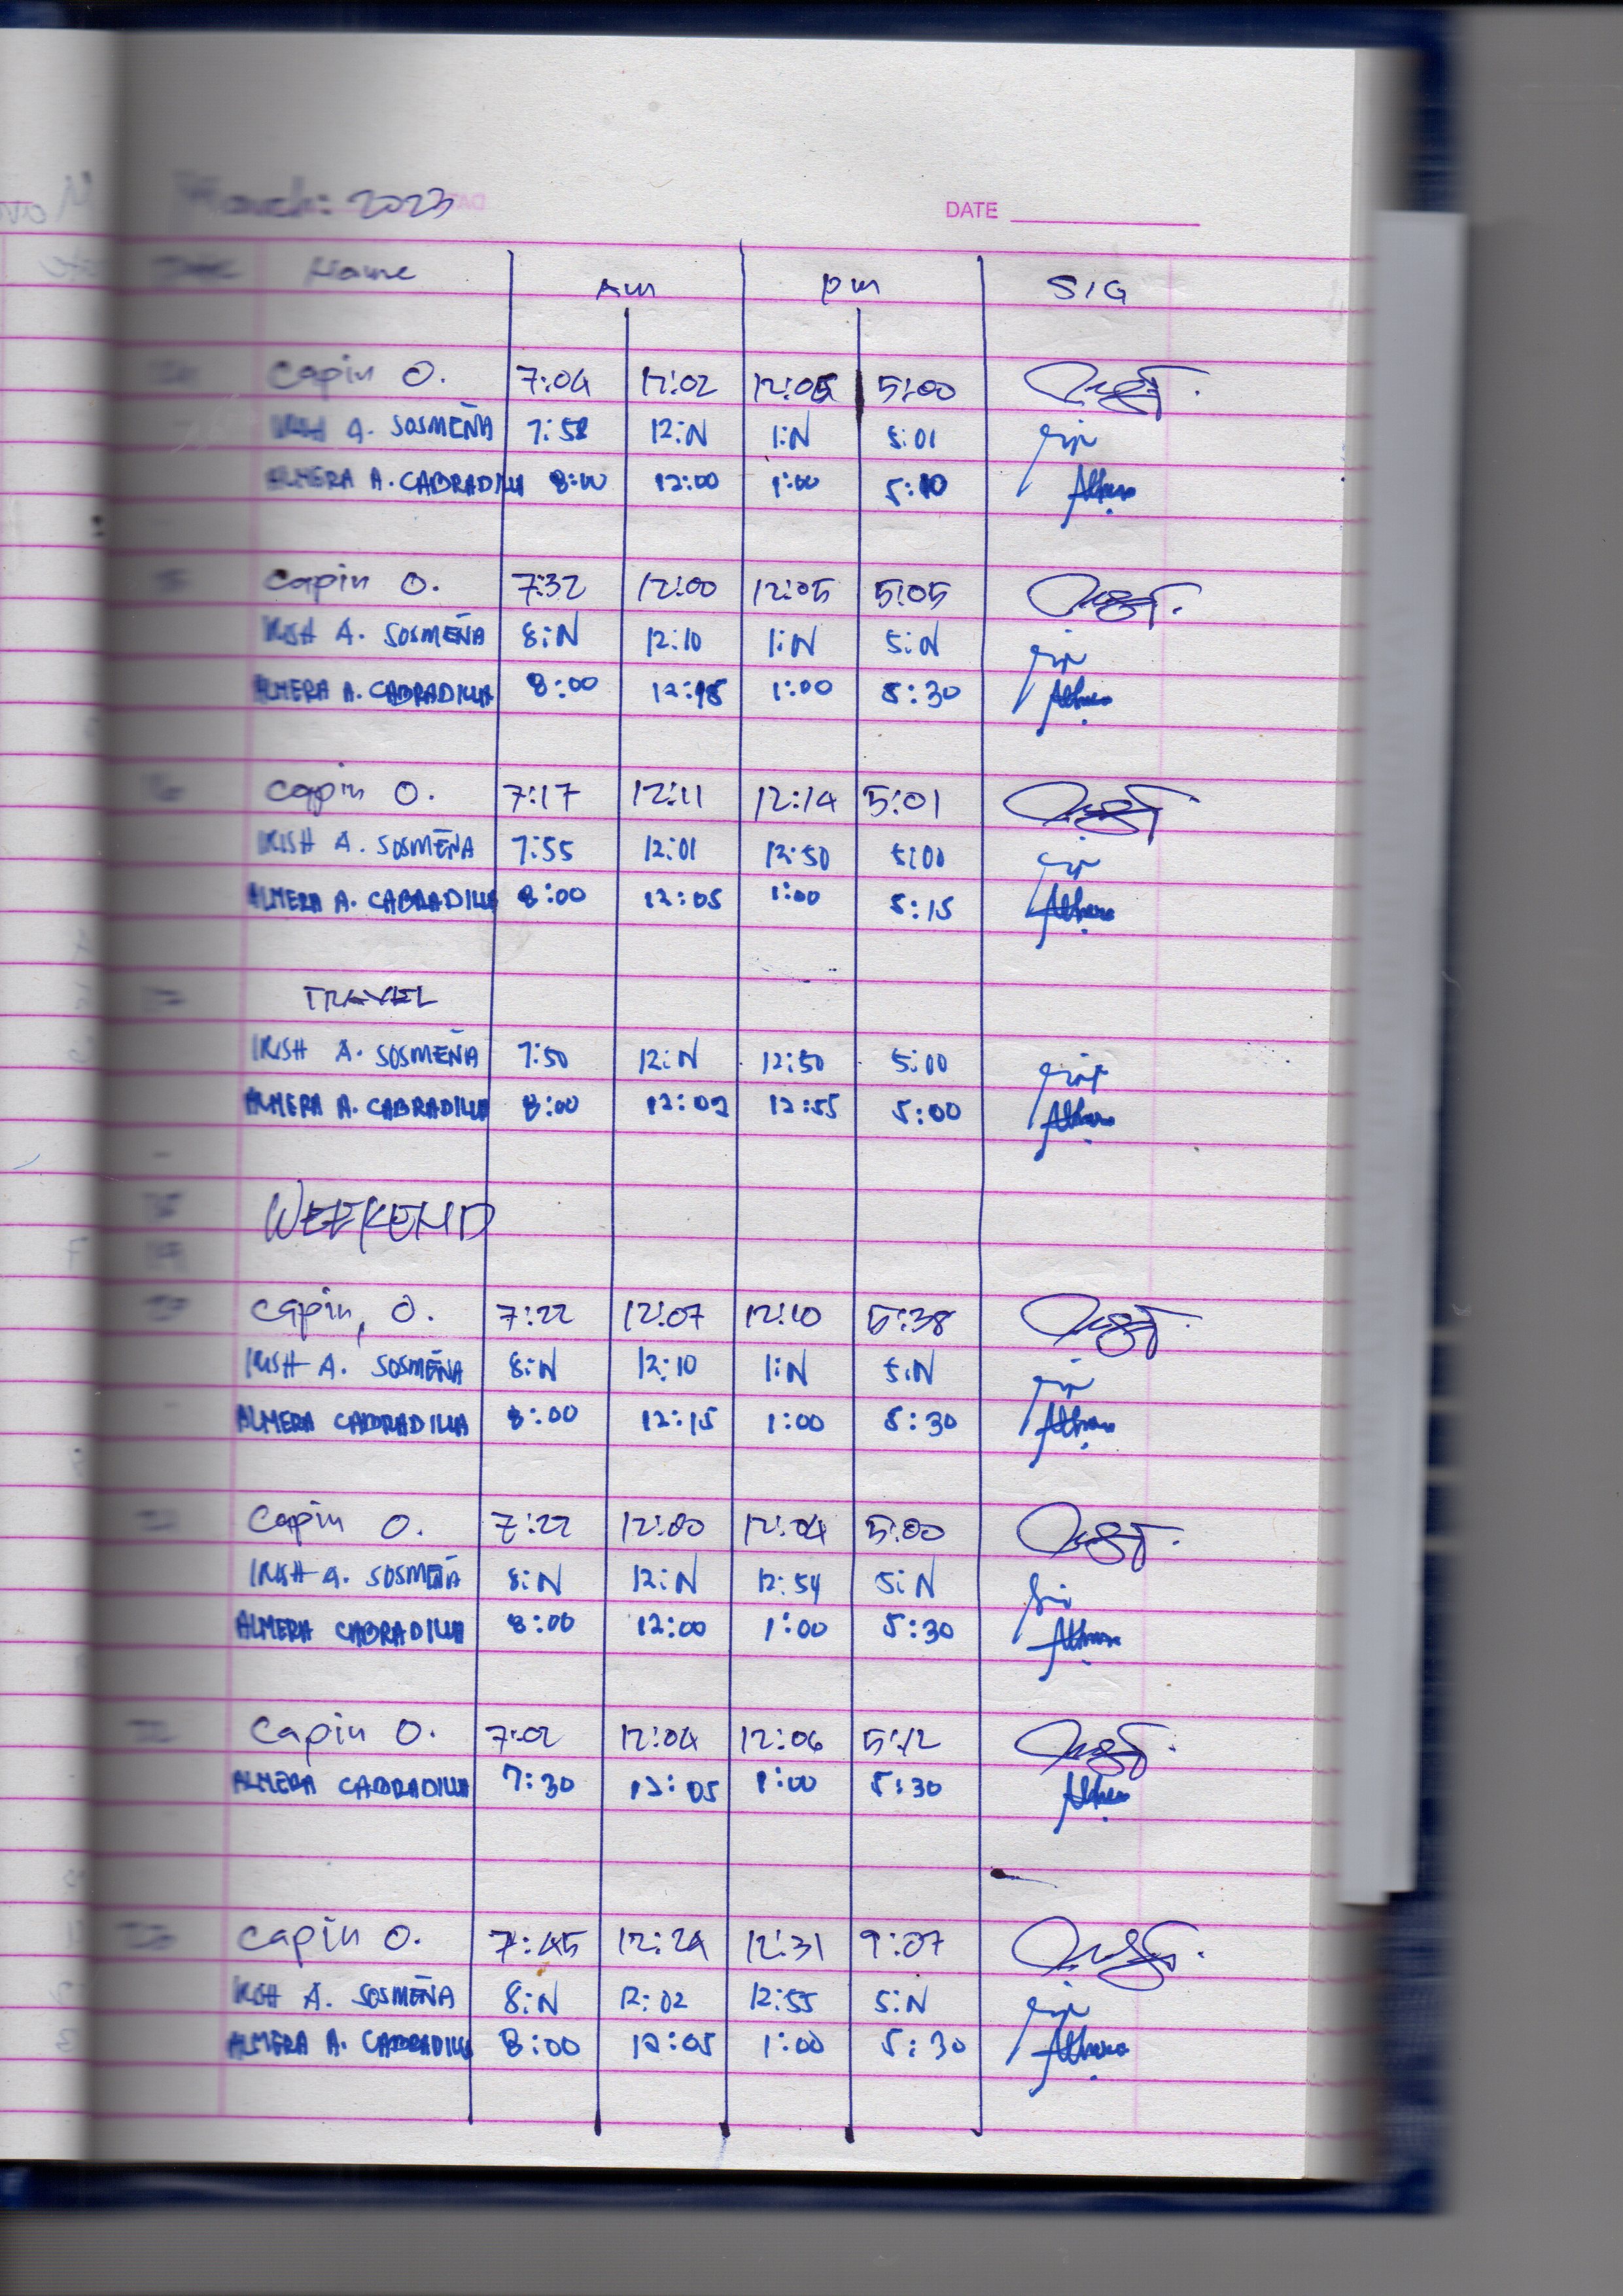 March: 2023
DATE
DATE Name Am pm SIG
Capin O. 7:04 12:02 12:05 5:00
IRISH A. SOSMEÑA 7:58 12:N 1:N 5:01
ALMERA A. CABRADILLA 8:00 12:00 1:00 5:10
15 Capin O. 7:32 12:00 12:05 5:05
IRISH A. SOSMEÑA 8:N 12:10 1:N 5:N
ALMERA A. CABRADILLA 8:00 12:15 1:00 5:30
16 Capin O. 7:17 12:11 12:14 5:01
IRISH A. SOSMEÑA 7:55 12:01 12:50 5:00
ALMERA A. CABRADILLA 8:00 12:05 1:00 5:15
17 TRAVEL
IRISH A. SOSMEÑA 7:50 12:N 12:50 5:00
ALMERA A. CABRADILLA 8:00 12:02 12:55 5:00
18 WEEKEND
19
20 Capin, O. 7:22 12:07 12:10 5:38
IRISH A. SOSMEÑA 8:N 12:10 1:N 5:N
ALMERA CABRADILLA 8:00 12:15 1:00 5:30
21 Capin O. 7:22 12:00 12:04 5:00
IRISH A. SOSMEÑA 8:N 12:N 12:54 5:N
ALMERA CABRADILLA 8:00 12:00 1:00 5:30
22 Capin O. 7:02 12:04 12:06 5:12
ALMERA CABRADILLA 7:30 12:05 1:00 5:30
23 Capin O. 7:45 12:24 12:31 9:07
IRISH A. SOSMEÑA 8:N 12:02 12:55 5:N
ALMERA A. CABRADILLA 8:00 12:05 1:00 5:30